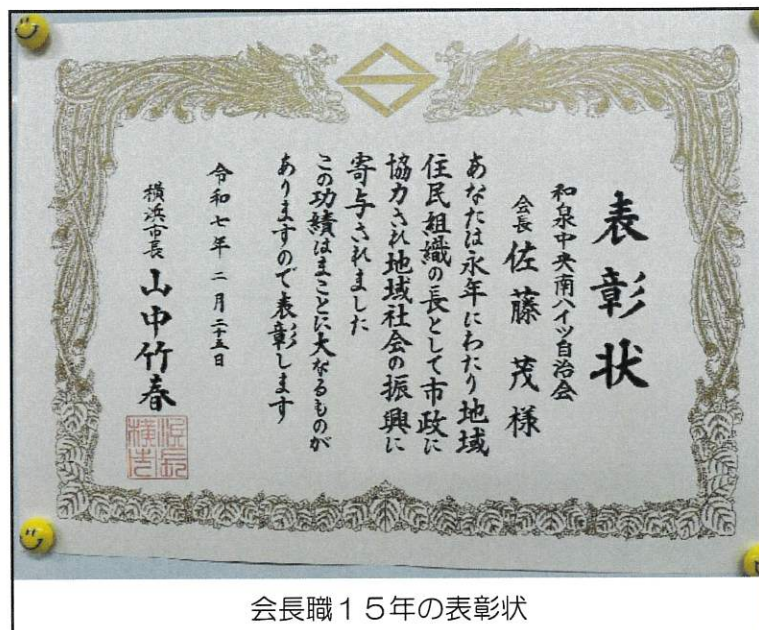 表彰状
和泉中央南ハイツ自治会
会長 佐藤 茂 様
あなたは永年にわたり地域
住民組織の長として市政に
協力され地域社会の振興に
寄与されました
この功績はまことに大なるものが
ありますので表彰します
令和七年二月二十五日
横浜市長 山中竹春
会長職15年の表彰状